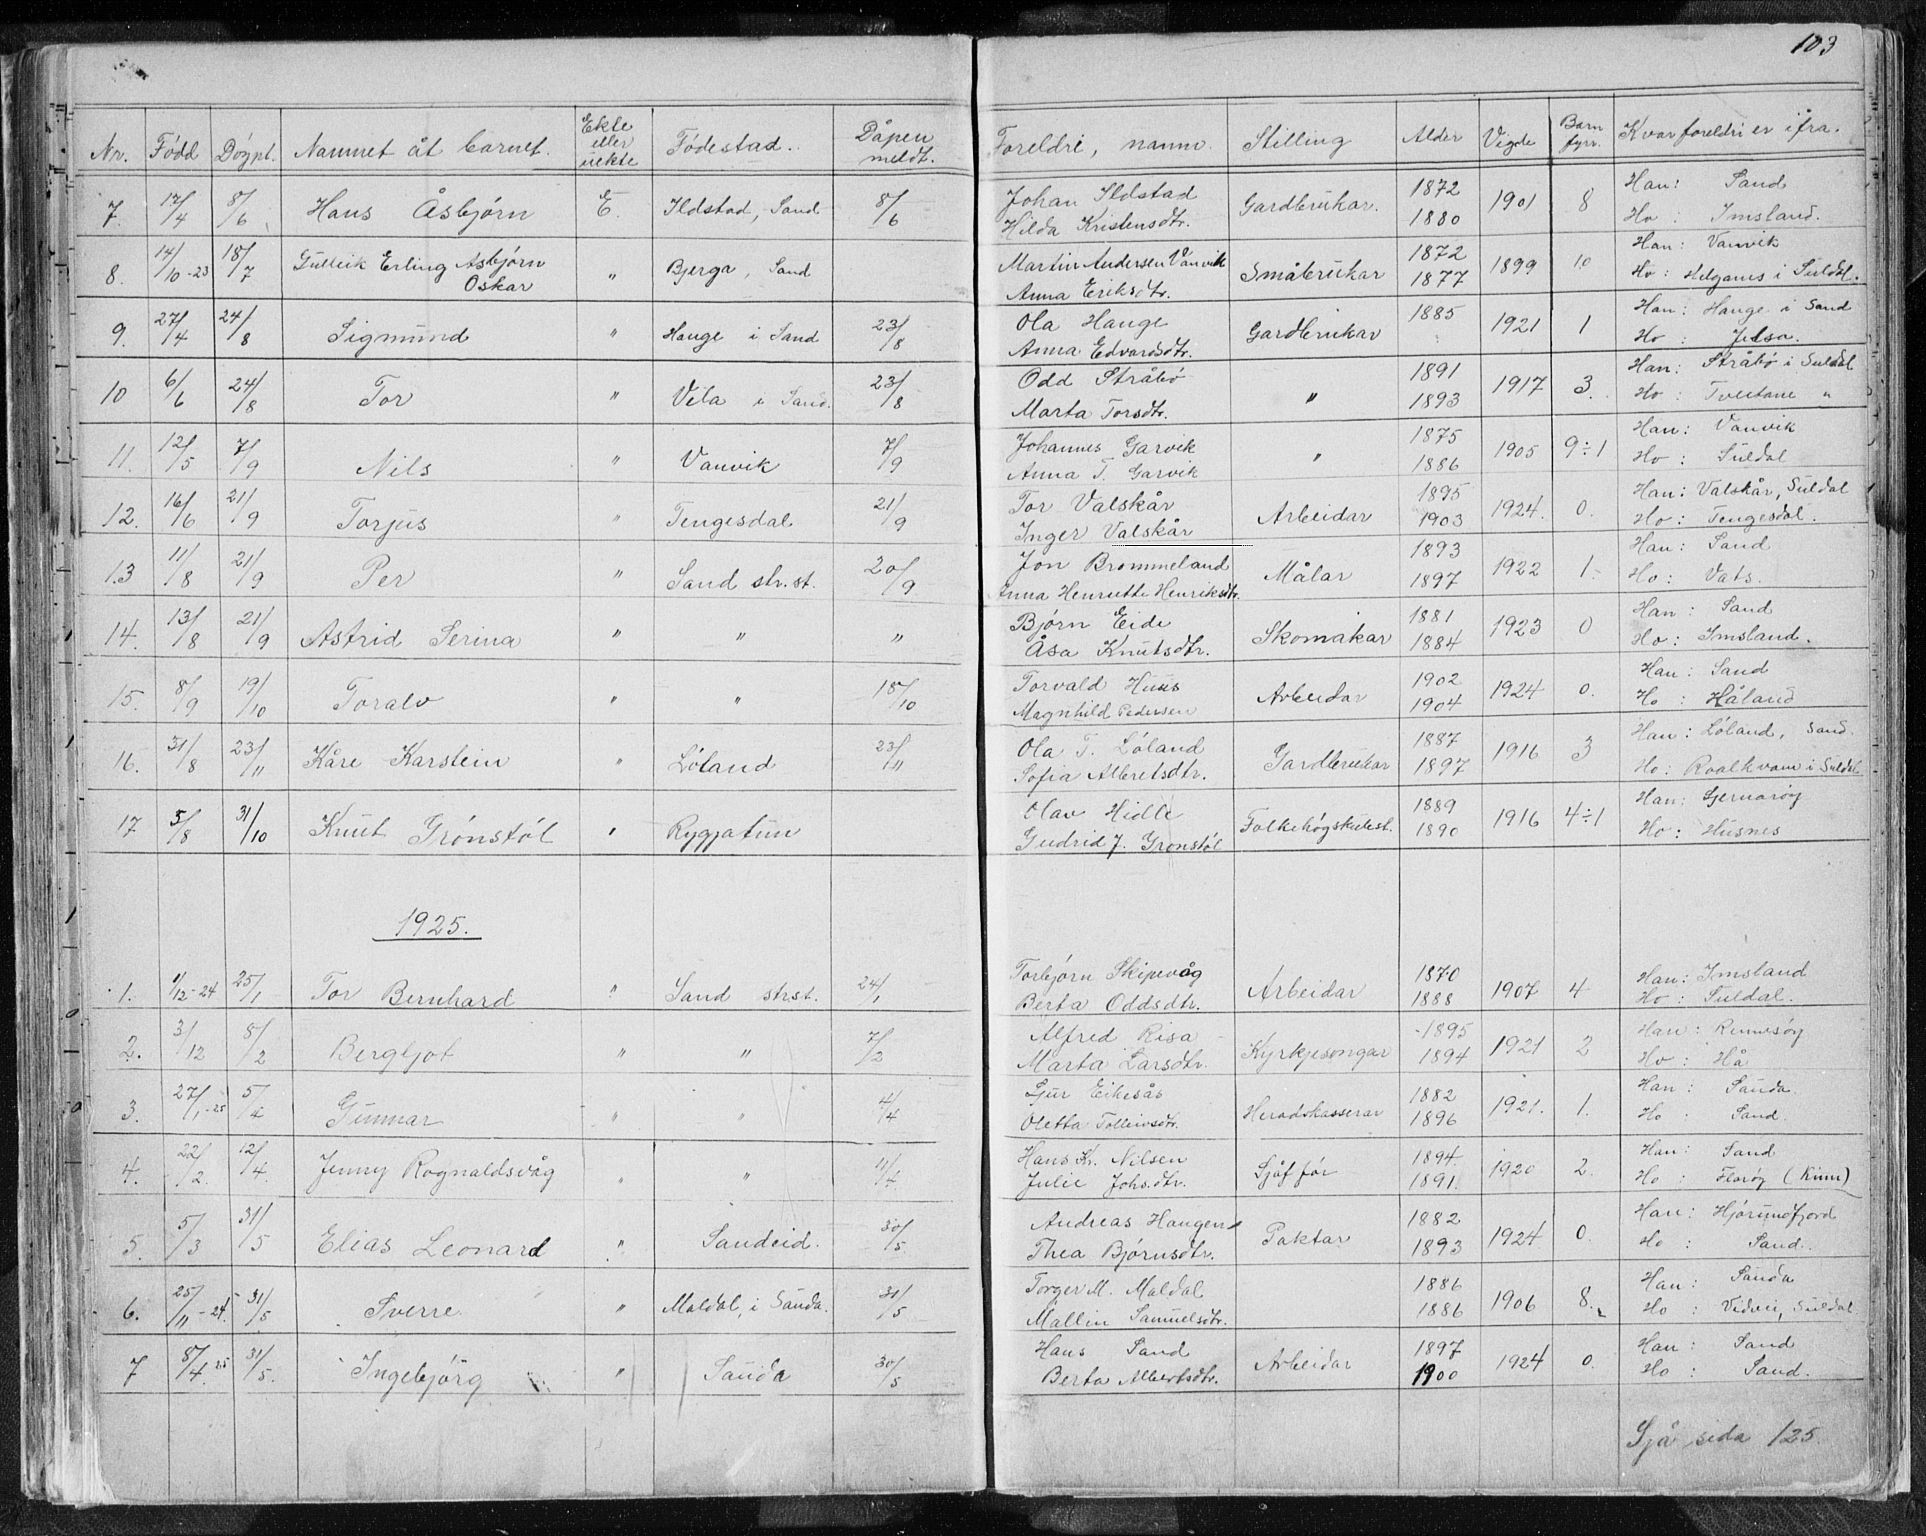 103
Nr. Född Döypt. Namnet åt barnet. Ekte eller uekte Födestad. Dåpen meldt. Foreldri, namn. Stilling Alder Vigde Barn fyrr. Kvar foreldri er ifra.
7. 17/4 8/6 Hans Åsbjørn E. Ilstad, Sand 8/6 Johan Ilstad Gardbrukar. 1872 1901 8 Han: Sand
Hilda Kristensdtr. 1880 Ho: Imsland.
8. 14/10-23 18/7 Gulleik Erling Asbjørn Oskar " Bjerga, Sand Martin Andersen Vanvik Småbrukar 1872 1899 10 Han: Vanvik
Anna Eriksdtr. 1877 Ho: Helganes i Suldal.
9. 27/4 24/8 Sigmund " Hauge i Sand 23/8 Ola Hauge Gardbrukar 1885 1921 1 Han: Hauge i Sand
Anna Edvardsdtr. Ho: Jelsa.
10 6/6 24/8 Tor " Vela i Sand. 23/8 Odd Stråbö " 1891 1917 3. Han: Stråbö i Suldal
Marta Torsdtr. 1893 Ho: Tveitane "
11. 12/5 7/9 Nils " Vanvik 7/9 Johannes Garvik " 1875 1905 9÷1 Han: Vanvik
Anna T. Garvik 1886 Ho: Suldal
12. 16/6 21/9 Torjus " Tengesdal 21/9 Tor Valskår Arbeidar 1895 1924. 0. Han: Valskår, Suldal
Inger Valskår 1903 Ho: Tengesdal.
13 11/8 21/9 Per " Sand str.st. 20/9 Jon Brommeland Målar 1893 1922 1. Han: Sand
Anna Henriette Henriksdtr. 1897 Ho: Vats.
14. 13/8 21/9 Astrid Serina " " " Bjørn Eide Skomakar 1881 1923 0 Han: Sand
Åsa Knutsdtr. 1884 Ho: Imsland.
15. 8/9 19/10 Toralv " " 18/10 Torvald Huus Arbeidar 1902 1924 0. Han: Sand
Magnhild Pedersen 1904 Ho: Håland
16. 31/8 23/11 Kåre Karstein " Löland 23/11 Ola T. Löland Gardbrukar 1887 1916 3 Han: Löland, Sand.
Sofia Albretsdtr. 1897 Ho: Roalkvam i Suldal
17 5/8 31/10 Knut Grönstöl " Ryggjatun Olav Hidle Folkehøgskulest. 1889 1916 4÷1 Han: Sjernaröy
Gudrid J. Grønstöl 1890 Ho: Husnes
1925.
1. 1/12-24 25/1 Tor Bernhard " Sand strst. 24/1 Torbjørn Skipevåg Arbeidar 1870 1907 4 Han: Imsland
Berta Oddsdtr. 1888 Ho: Suldal.
2. 3/12 8/2 Bergljot " " 7/2 Alfred Risa Kyrkjesongar 1895 1921 2 Han: Rennesöy
Marta Larsdtr. 1894 Ho: Hå
3. 27/1-25 5/4 Gunnar " " 4/4 Sjur Eikesås Heradskasserar 1882 1921. 1. Han: Sauda
Oletta Tolleivsdtr. 1896 Ho: Sand
4. 22/2. 12/4. Jenny Rognaldsvåg " " 11/4 Hans Kr. Nilsen Sjåfför 1894. 1920 2. Han: Sand
Julie Johs.dtr. 1891. Ho: Floröy (Kinn)
5. 5/3 31/5 Elias Leonard " Sandeid. 30/5. Andreas Haugen Paktar 1882 1924 0. Han: Hjörundfjord
Thea Bjørnsdtr. 1893 Ho: Sand.
6. 25/11-24. 31/5 Sverre " Maldal, i Sauda. 31/5 Torger M. Maldal 1886 1906 8. Han: Sauda
Mallin Samuelsdtr. 1886 Ho: Vidvei, Suldal
7 8/4. 25 31/5. Ingebjörg " Sauda 30/5 Hans Sand Arbeidar 1897 1924 0. Han: Sand
Berta Albertsdtr. 1900 Ho: Sand.
Sjå sida 125.